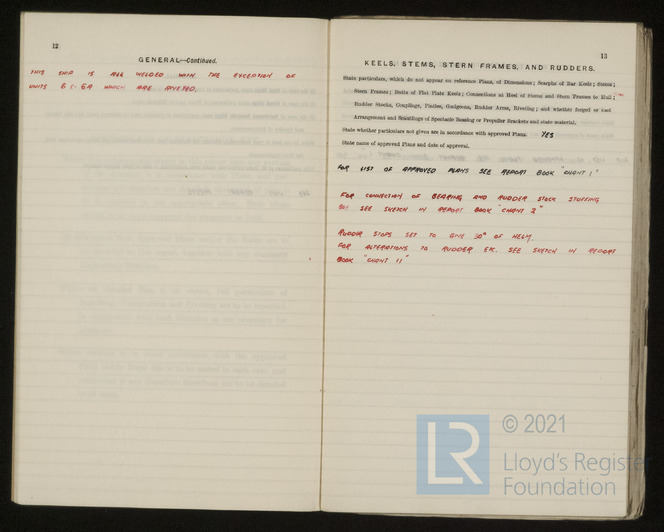 12
GENERAL—Continued.
THIS SHIP IS ALL WELDED WITH THE EXCEPTION OF
UNITS 6 & 6A WHICH ARE RIVETED.
13
KEELS, STEMS, STERN FRAMES, AND RUDDERS.
State particulars, which do not appear on reference Plans, of Dimensions; Scarphs of Bar Keels; Stems;
Stern Frames; Butts of Flat Plate Keels; Connections at Heel of Stems and Stern Frames to Hull;
Rudder Stocks, Couplings, Pintles, Gudgeons, Rudder Arms, Riveting; and whether forged or cast
Arrangement and Scantlings of Spectacle Bossing or Propeller Brackets and state material.
State whether particulars not given are in accordance with approved Plans. YES
State name of approved Plans and date of approval.
FOR LIST OF APPROVED PLANS SEE REPORT BOOK "CHANT 1"
FOR CONNECTION OF BEARING AND RUDDER STOCK STUFFING
BOX SEE SKETCH IN REPORT BOOK "CHANT 2"
RUDDER STOPS SET TO GIVE 30° OF HELM.
FOR ALTERATIONS TO RUDDER ETC. SEE SKETCH IN REPORT
BOOK "CHANT 11"
LR
© 2021
Lloyd's Register
Foundation